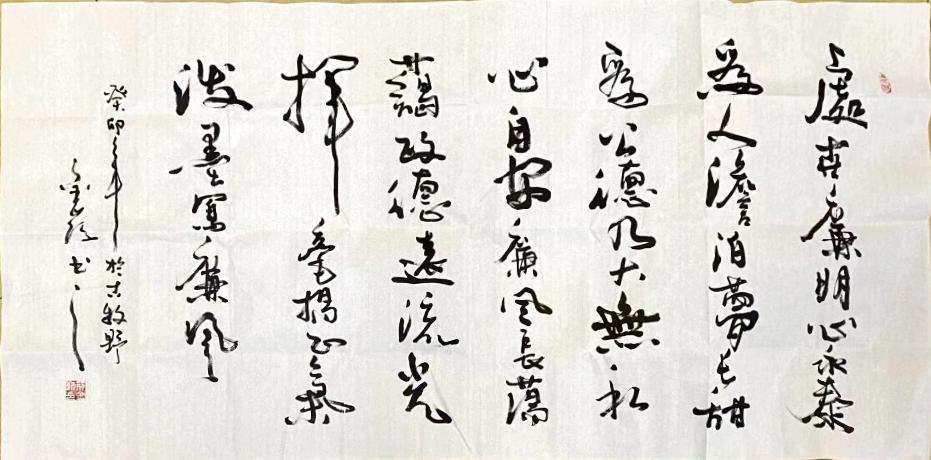 處世廉明心永泰
為人澹泊夢長甜
為公德乃大無私
心自安廉風長蕩
藹政德遠流光
揮毫揚正氣
潑墨寫廉風
癸卯年於古牧野
書